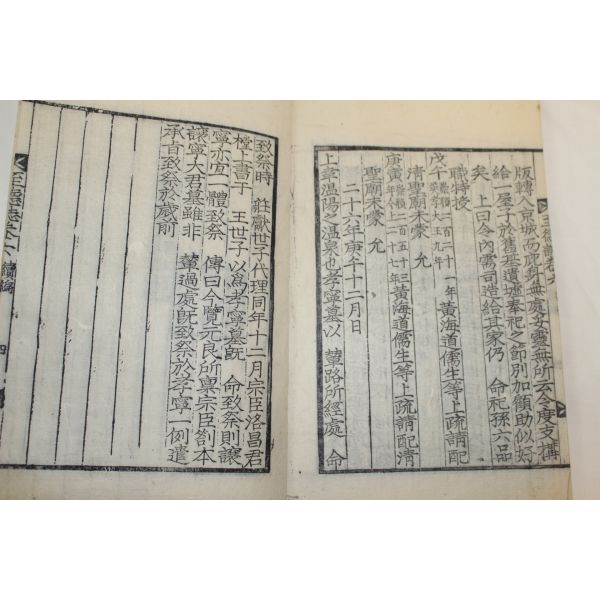 版轉入京城而庇身無處妥靈無所云令度支搆
給一屋子於舊基遺墟奉祀之節別加顧助似好
矣 上曰令內需司造給其家仍 命祀孫六品
職特授
戊午 一百二十一年 黃海道儒生等上疏請配
清聖廟未蒙 允
庚寅 一百五十三年 黃海道儒生等上疏請配清
聖廟未蒙 允
二十六年庚午十二月日
上幸溫陽之溫泉也孝寧墓以 輦路所經處 命
致祭時 莊獻世子代理同年十二月宗臣洛昌君
樘上書于 王世子以爲孝寧墓旣 命致祭則讓
寧亦宜一體致祭 傳曰今覽元良所稟宗臣劄本
讓寧大君墓雖非 輦過處旣致祭於孝寧一例遣
承旨致祭於歲前
續編
四